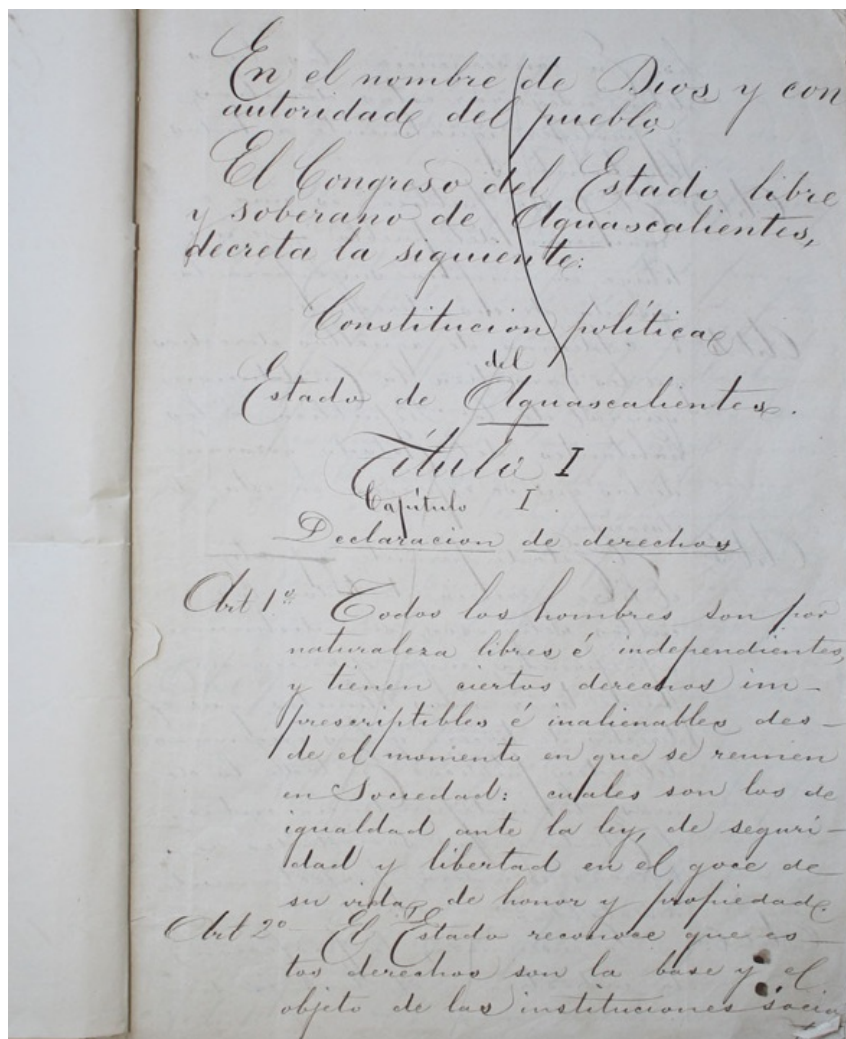 En el nombre de Dios y con
autoridad del pueblo,
El Congreso del Estado libre
y soberano de Aguascalientes,
decreta la siguiente:
Constitucion política
del
Estado de Aguascalientes.
Título I
Capítulo I
Declaracion de derechos
Art 1º Todos los hombres son por
naturaleza libres é independientes,
y tienen ciertos derechos im-
prescriptibles é inalienables des-
de el momento en que se reunen
en Sociedad: cuales son los de
igualdad ante la ley, de seguri-
dad y libertad en el goce de
su vida, de honor y propiedad.
Art 2º El Estado reconoce que es-
tos derechos son la base y el
objeto de las instituciones socia